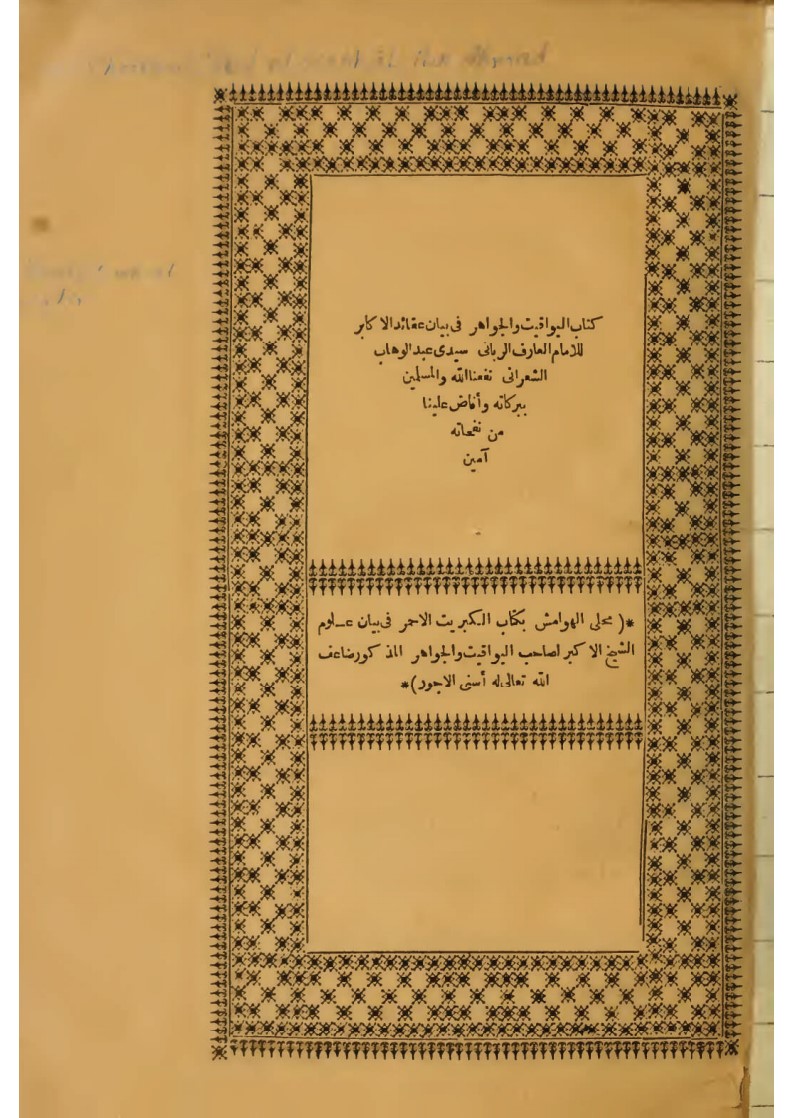 كتاب اليواقيت والجواهر فى بيان عقائد الاكابر
للامام العارف الربانى سيدى عبد الوهاب
الشعرانى نفعنا الله والمسلمين
ببركاته وأفاض علينا
من نفحاته
آمين
*( محلى الهوامش بكتاب الكبريت الاحمر فى بيان علوم
الشيخ الاكبر لصاحب اليواقيت والجواهر المذكور ضاعف
الله تعالى له أسنى الاجور )*